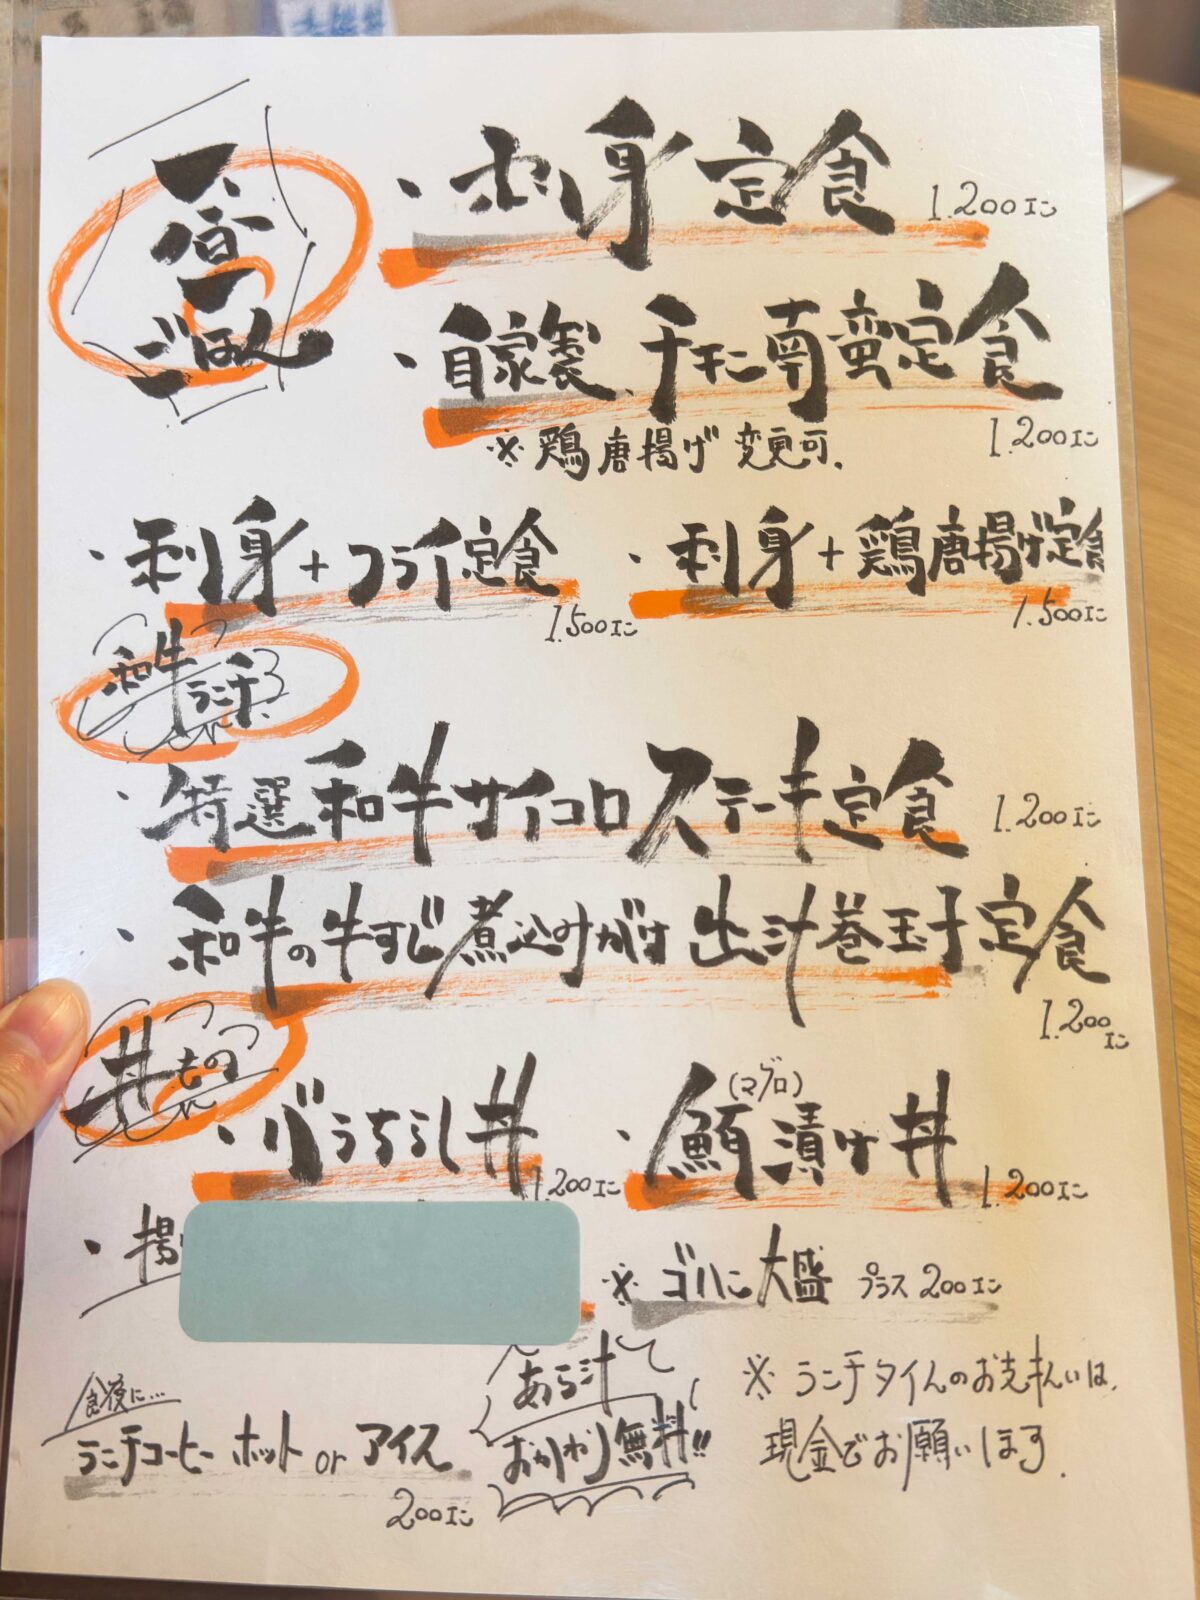 昼
ごはん
・刺身定食 1.200エン
・自家製チキン南蛮定食
1.200エン
※鶏唐揚げ変更可.
・刺身+フライ定食
1.500エン
・刺身+鶏唐揚げ定食
1.500エン
和牛
ランチ
・特選和牛サイコロステーキ定食 1.200エン
・和牛の牛すじ煮込みがけ出汁巻玉子定食
1.200エン
丼もの
・バラちらし丼
1.200エン
(マグロ)
・鮪漬け丼
1.200エン
・揚
※ゴハン大盛 プラス200エン
食後に…
ランチコーヒー ホット or アイス
200エン
あら汁
おかわり無料!!
※ランチタイムのお支払いは、
現金でお願いします.